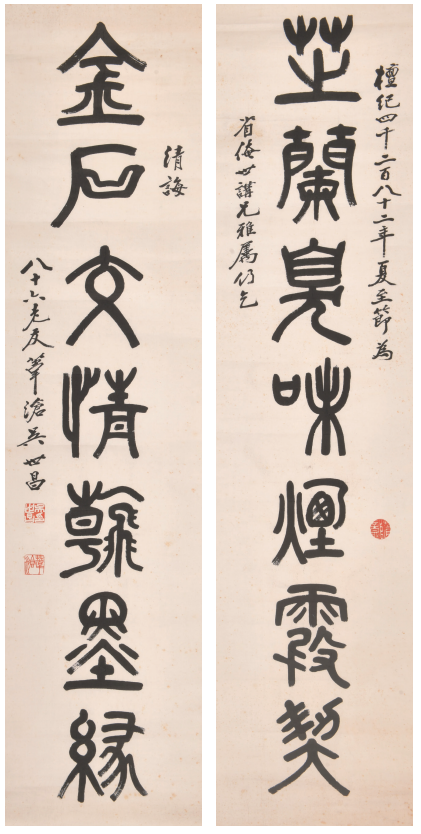 檀紀四千二百八十二年夏至節為
芝蘭臭味煙霞契
省世講兄雅屬仍乞
清誨
金石交情翰墨緣
八十六老友葦滄吳世昌